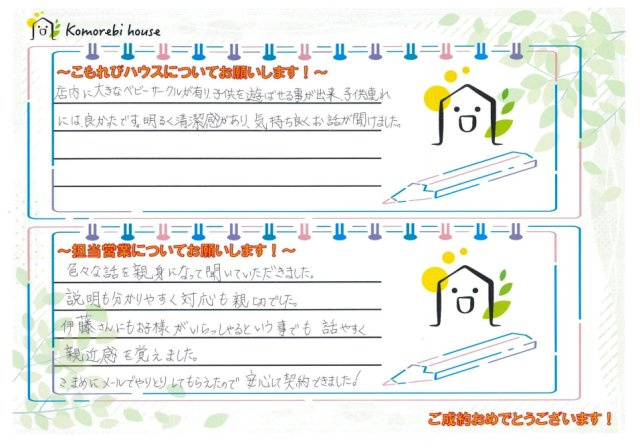 Komorebi house
〜こもれびハウスについてお願いします！〜
店内に大きなベビーサークルが有り、子供を遊ばせる事が出来、子供連れ
には良かたです。明るく清潔感があり、気持ち良くお話が聞けました。
〜担当営業についてお願いします！〜
色々な話を親身になって聞いていただきました。
説明も分かりやすく対応も親切でした。
伊藤さんにもお子様がいらっしゃるという事でも話やすく
親近感を覚えました。
こまめにメールでやりとりしてもらえたので安心して契約できました！
ご成約おめでとうございます！